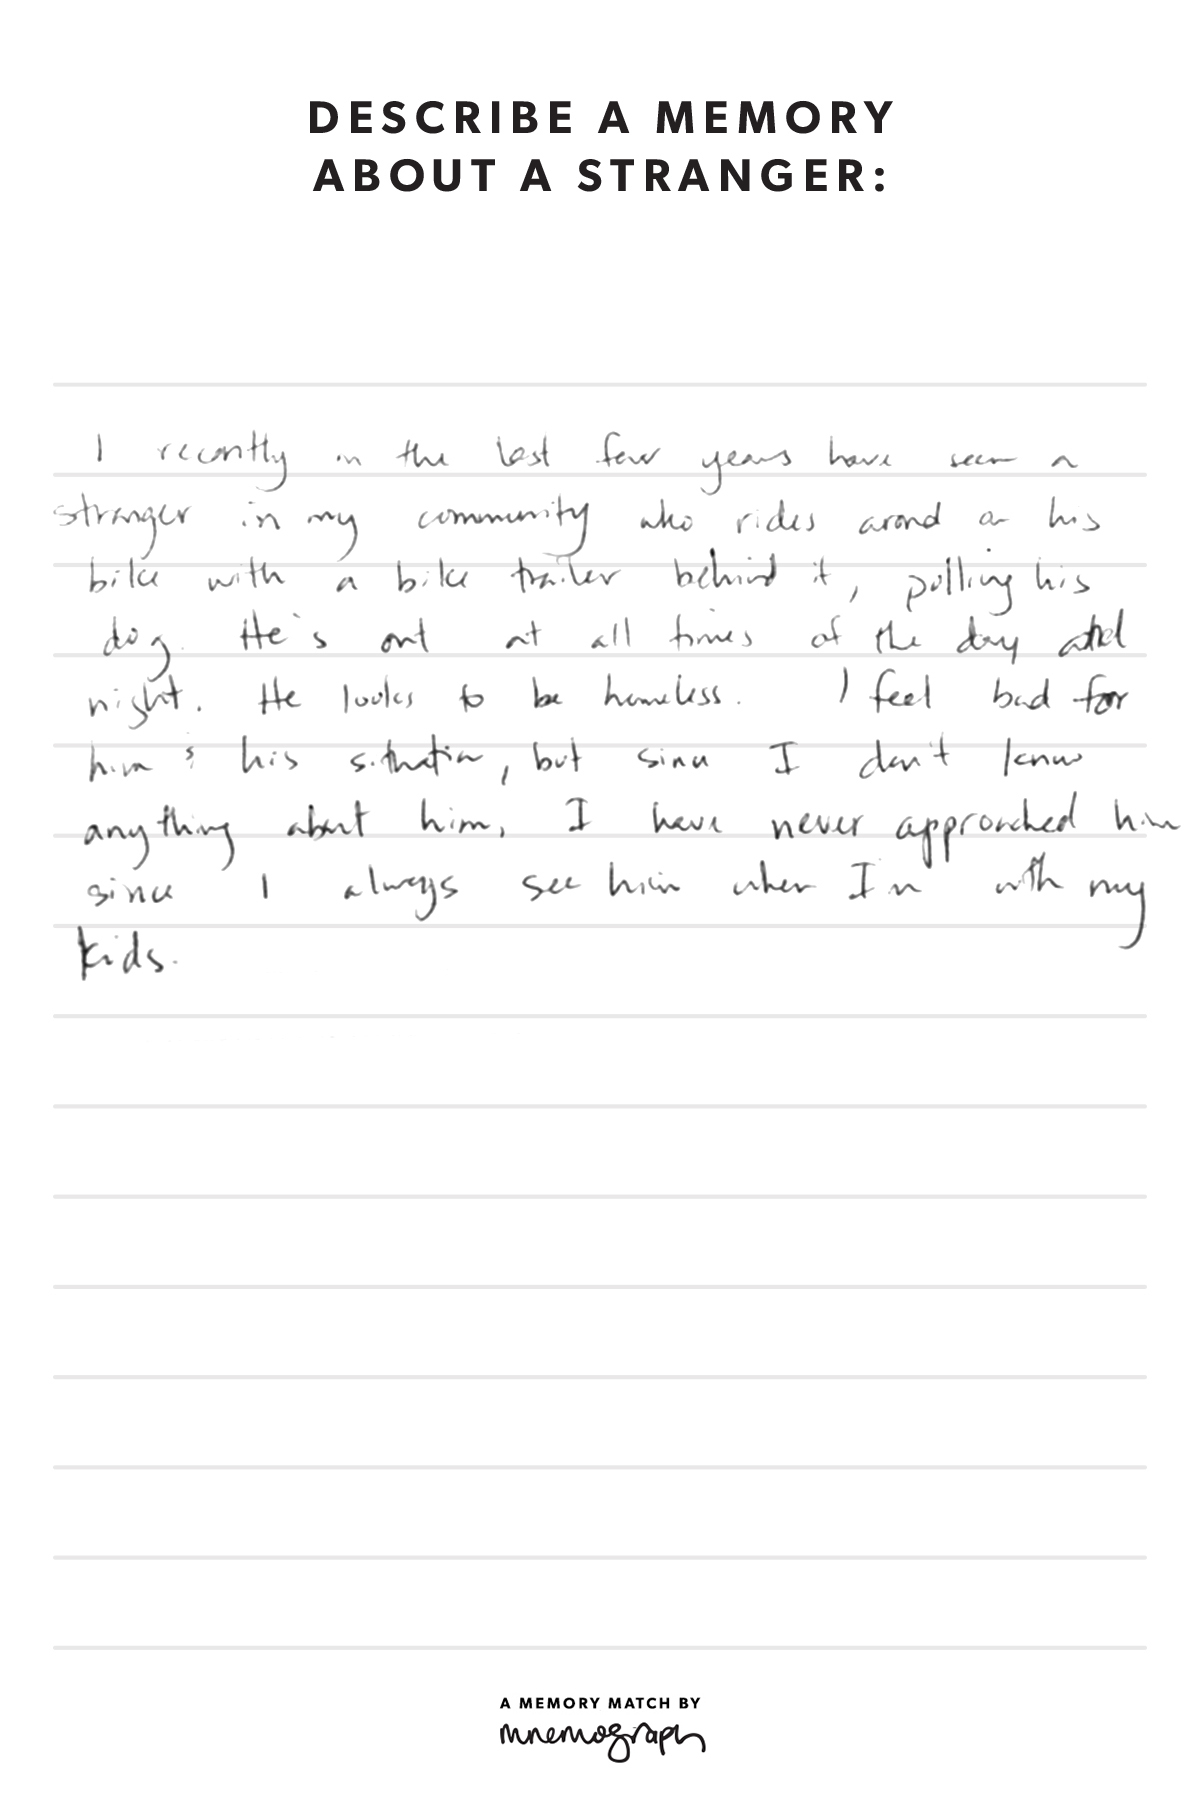 DESCRIBE A MEMORY
ABOUT A STRANGER:
I recently in the last few years have seen a
stranger in my community who rides arond on his
bike with a bike trailer behind it, pulling his
dog. He's out at all times of the day and
night. He looks to be homeless. I feel bad for
him & his situation, but since I don't know
anything about him, I have never approached him
since I always see him when I'm with my
kids.
A MEMORY MATCH BY
mnemograph